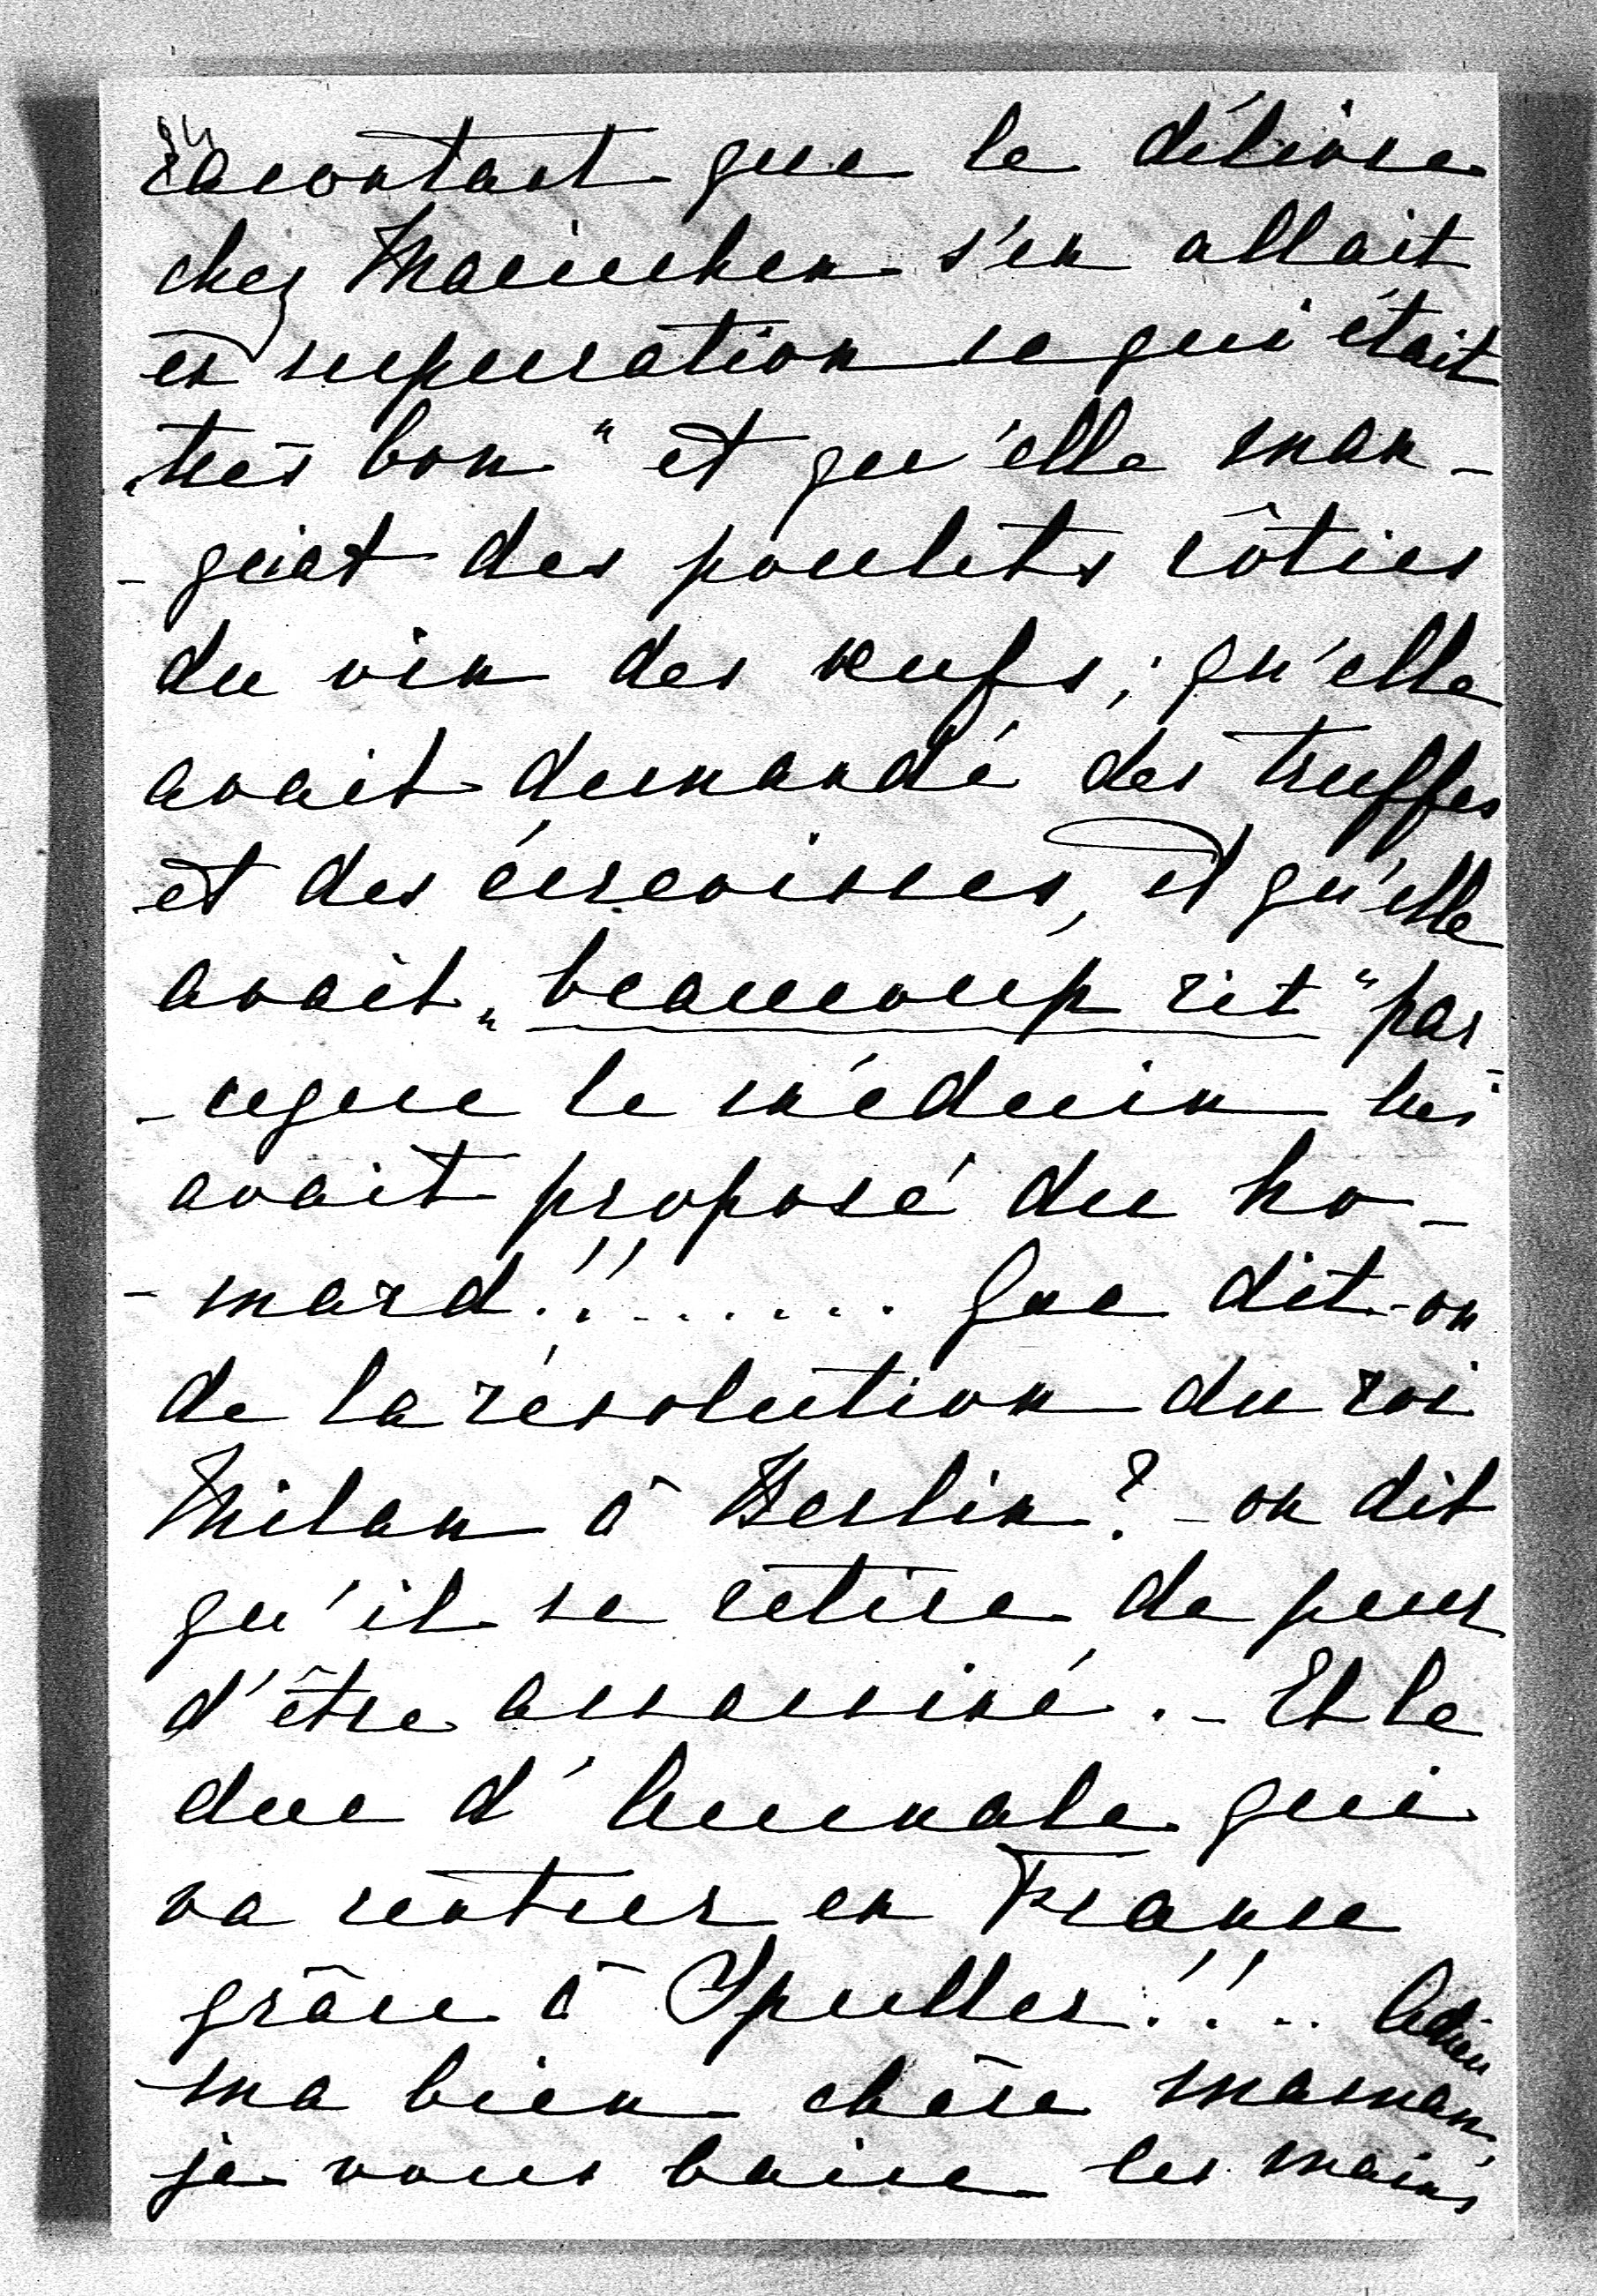 racontant que le délivre
chez Mainchen s'en allait
en supuration ce qui était
„très bon" et qu'elle man-
-geait des poulets rôties
du vin des œufs; qu'elle
avait demandé des truffes
et des écrevisses, et qu'elle
avait „beaucoup rit" par-
-ceque le médecin lui
avait proposé du ho-
-mard!!....... Que dit-on
de la résolution du roi
Milan à Berlin? - on dit
qu'il se retire de peur
d'être assassiné. - Et le
duc d'Aumale qui
va rentrer en France
grâce à Spuller!!.. Adieu
ma bien chère maman,
je vous baise les mains